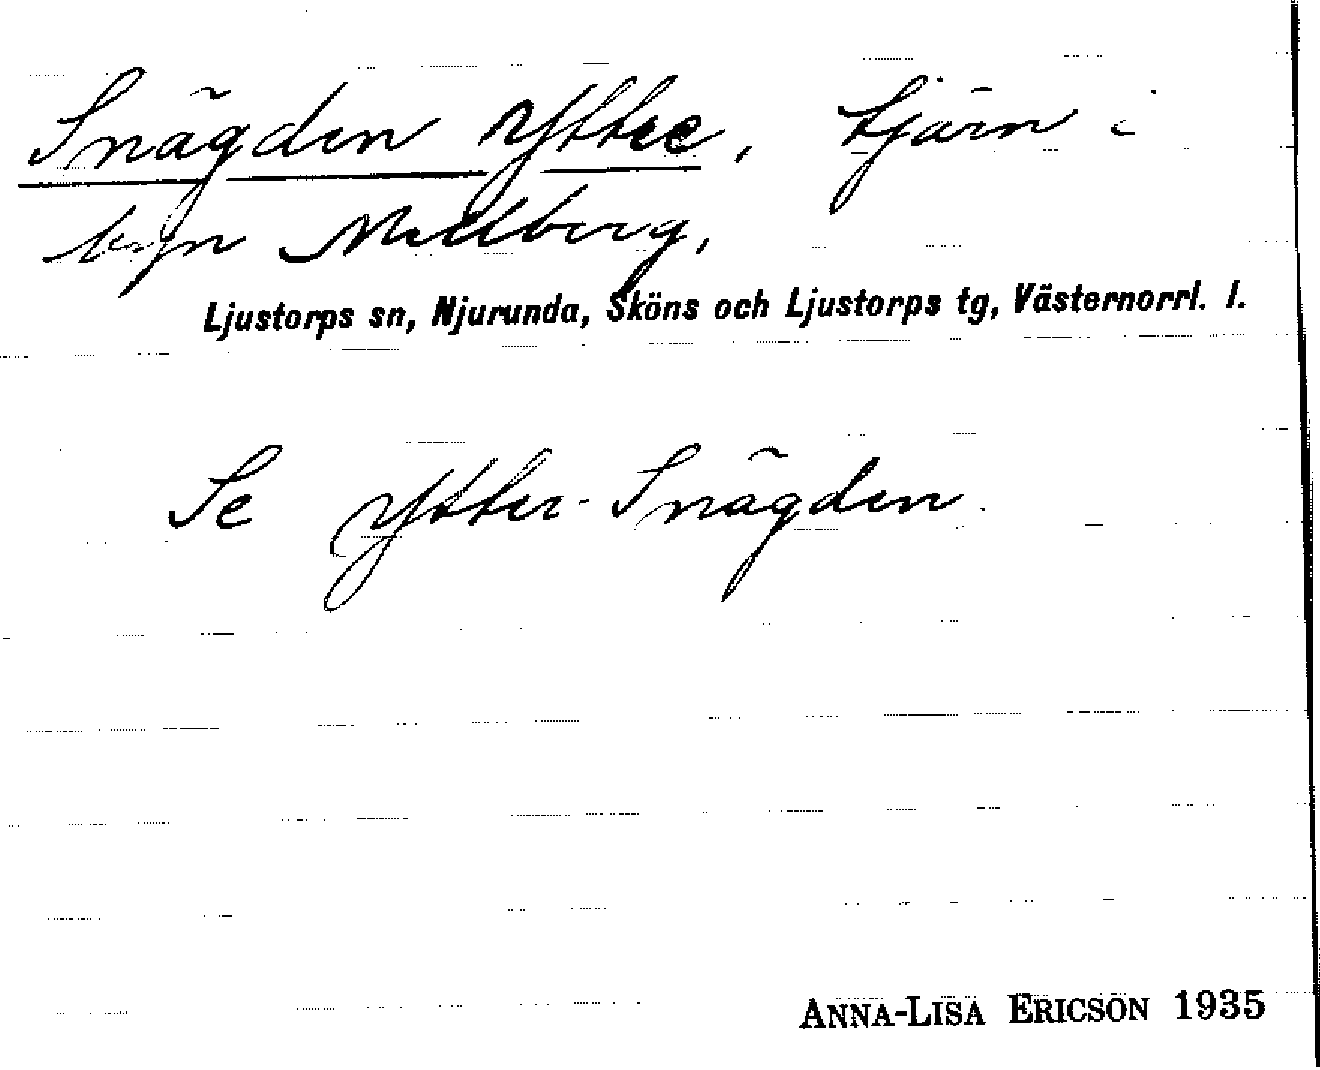 Snägden Ytter, tjärn i
byn Mellberg,
Ljustorps sn, Njurunda, Sköns och Ljustorps tg, Västernorrl. l.
Se Ytter-Snägden.
ANNA-LISA ERICSON 1935